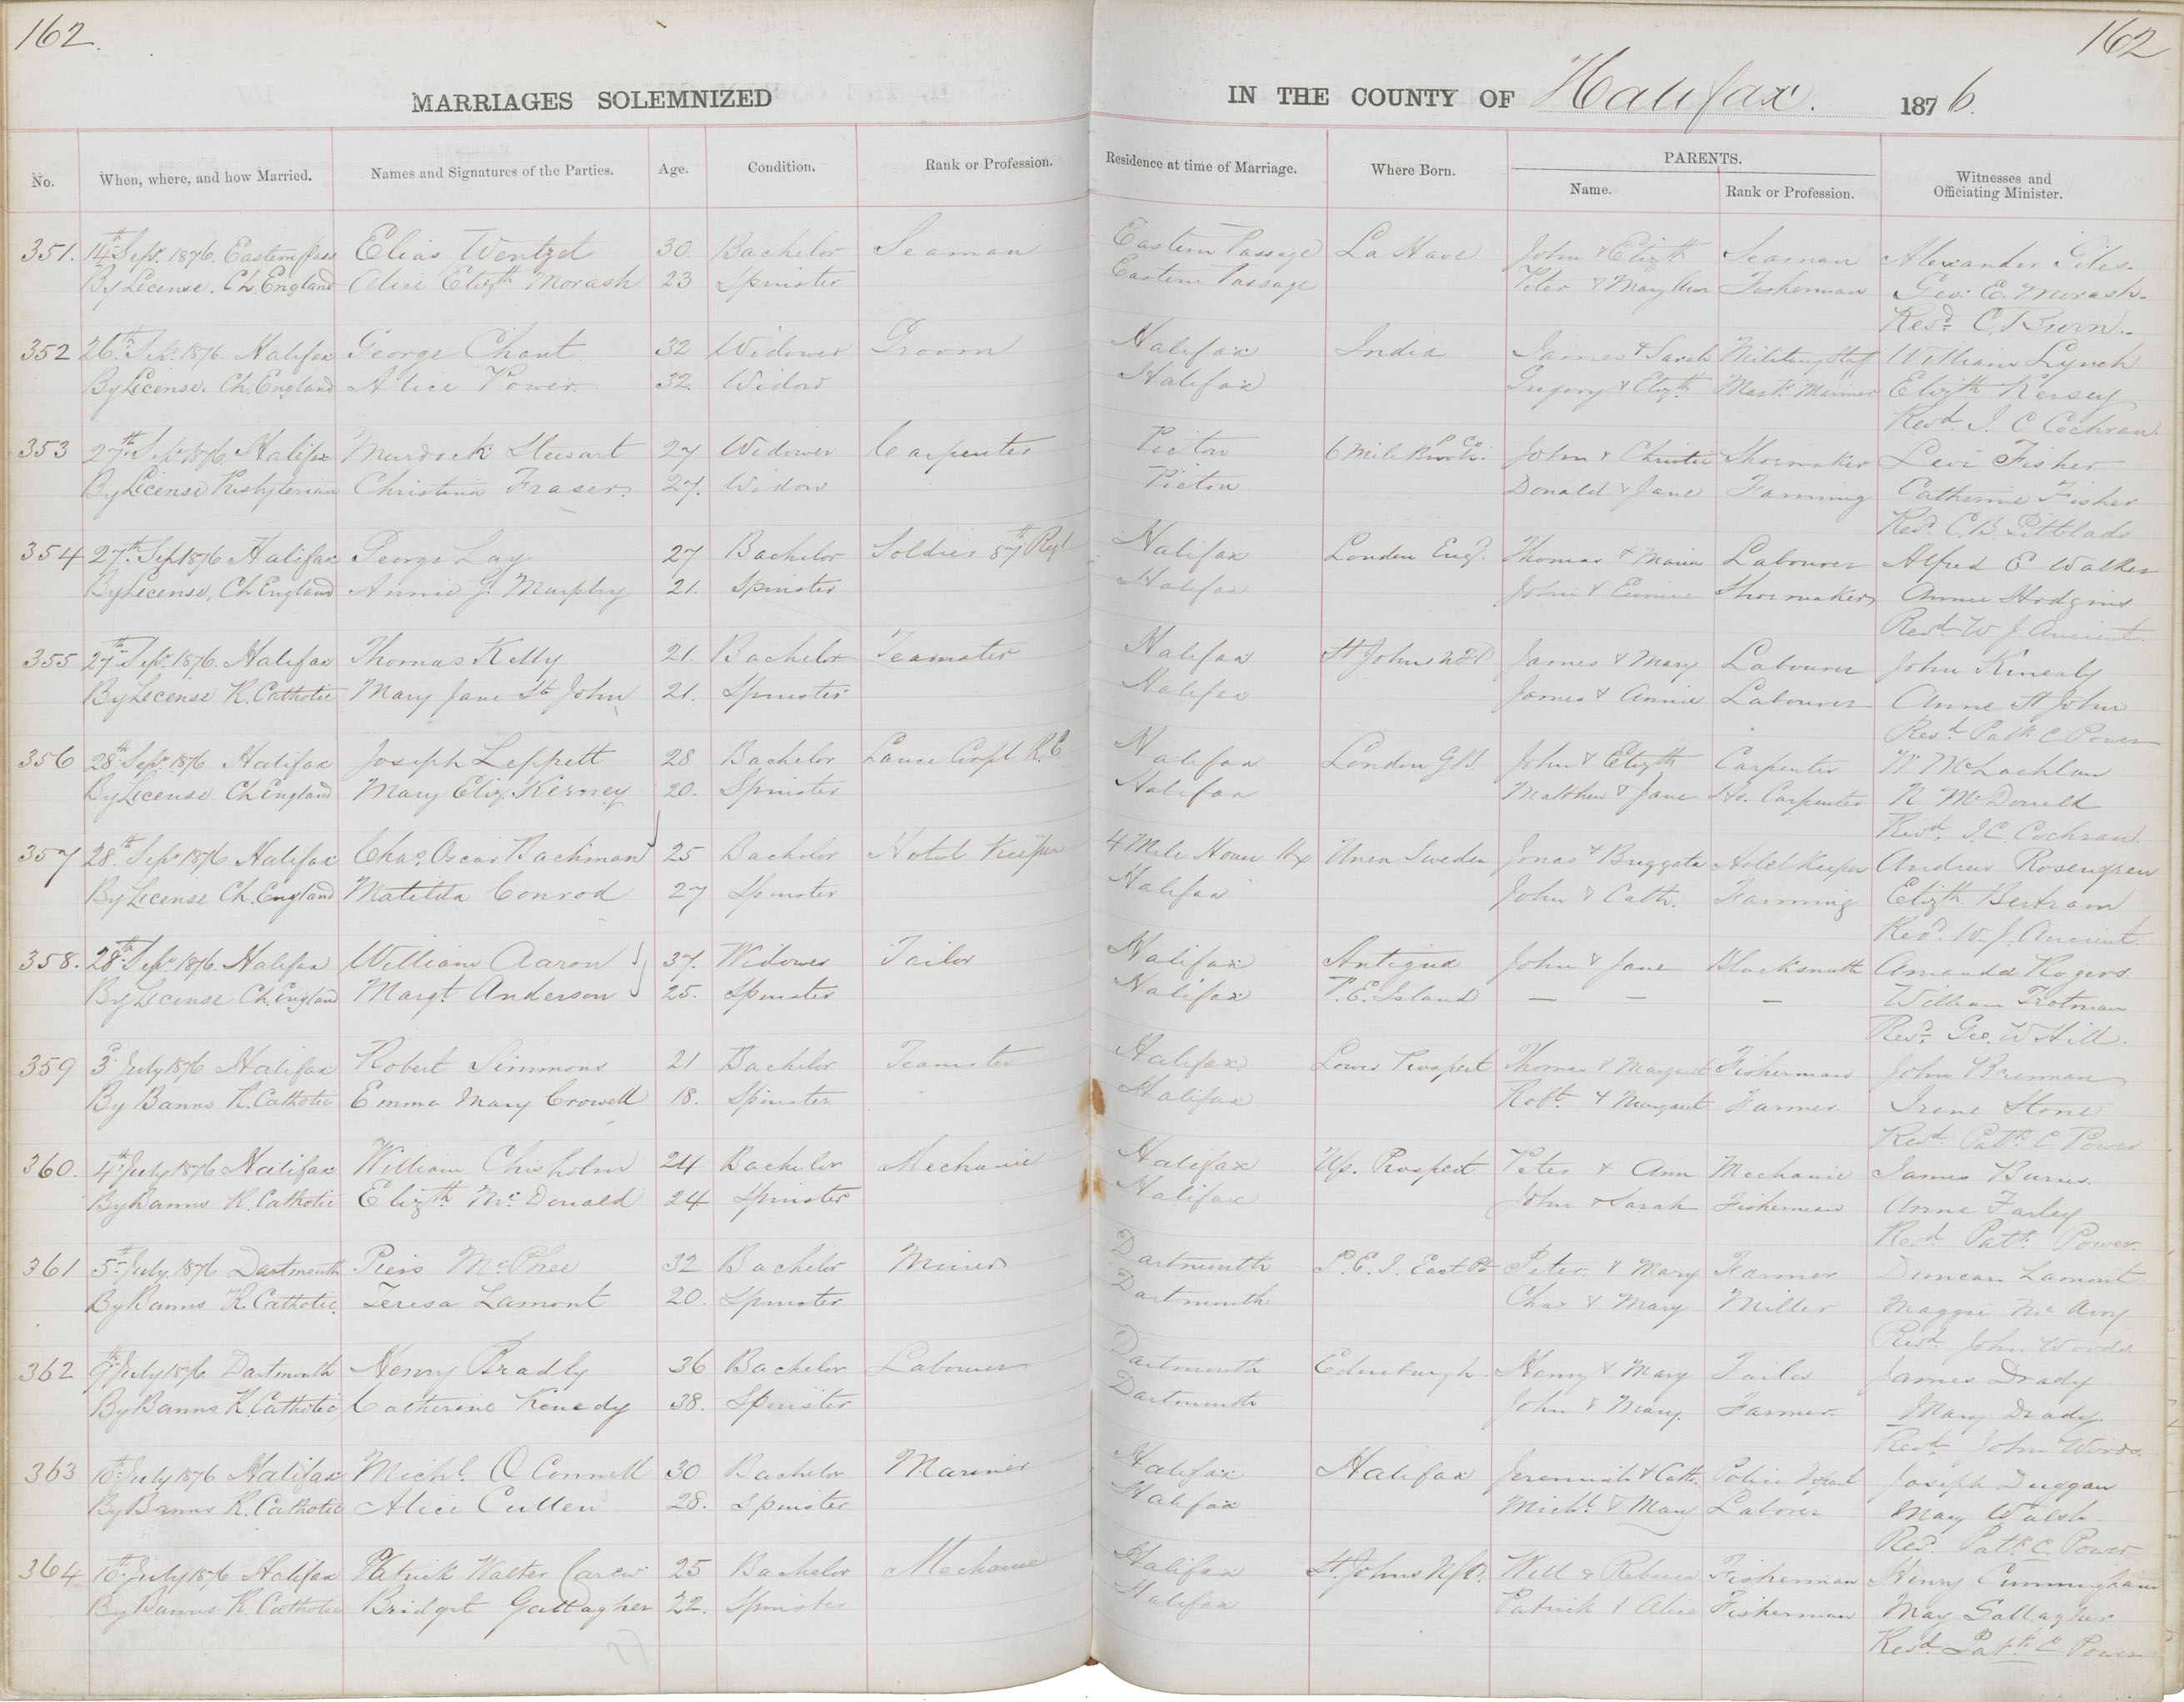 162.
162
MARRIAGES SOLEMNIZED IN THE COUNTY OF Halifax. 1876.
No. When, where, and how Married. Names and Signatures of the Parties. Age. Condition. Rank or Profession. Residence at time of Marriage. Where Born. PARENTS. Name. Rank or Profession. Witnesses and Officiating Minister.
351. 14th Sepr. 1876. Eastern Pass Elias Wentzel 30. Bachelor Seaman Eastern Passage La Have John & Elizth Seaman Alexander Giles.
By License. Ch. England Alice Elizth Morash 23 Spinster Eastern Passage Peter & Mary Ann Fisherman Geo: E. Morash.
Revd. C. Burn.
352 26th Sepr. 1876. Halifax George Chant 32 Widower Groom Halifax India James & Sarah Military Staff William Lynch
By License. Ch. England Alice Power 32. Widow Halifax Gregory & Elizth. Mastr. Mariner Elizth Kersey
Revd. J. C Cochran
353 27th Sepr 1876. Halifax Murdock Stewart 27 Widower Carpenter Pictou 6 Mile Brook P Co. John & Christie Shoemaker Levi Fisher
By License Presbyterian Christina Fraser. 27. Widow Pictou Donald & Jane Farming Catherine Fisher
Revd. C. B. Pitblado
354 27th Sep 1876 Halifax George Lay 27 Bachelor Soldier 87th Regt Halifax London Engd. Thomas & Maria Labourer Alfred E Walker
By License, Ch England Annie G. Murphy 21. Spinster Halifax John & Shoemaker Annie Hodgins
Revd. W J Ancient.
355 27th Sepr. 1876. Halifax Thomas Kelly 21. Bachelor Teamster Halifax St Johns NFD James & Mary Labourer John Kinerly
By License R. Catholic Mary Jane St John 21. Spinster Halifax James & Annie Labourer Anne St John
Revd. Patk C Power
356 28th Sepr. 1876 Halifax Joseph Leppett 28 Bachelor Lance Corpl R.E. Halifax London G.B. John & Elizth Carpenter W McLachlan
By License. Ch England Mary Eliz. Kerney 20. Spinster Halifax Matthew & Jane Ho. Carpenter N McDonald
Revd. J. C. Cochran
357 28th Sepr 1876 Halifax Chas. Oscar Bachman 25 Bachelor Hotel Keeper 4 Mile House Hx Unea Sweden Jonas & Buggeta Hotel Keeper Andrew Rosengren
By License Ch. England Matilda Conrod 27 Spinster Halifax John & Cath. Farming Elizth Bertram
Revd. W. J. Ancient.
358. 28th Sepr. 1876. Halifax William Aaron 37. Widower Tailor Halifax Antigua John & Jane Blacksmith Amanda Rogers
By License Ch. England Margt. Anderson 25. Spinster Halifax P. E. Island — — — William Trotman
Revd. Geo. W Hill.
359 3d July 1876 Halifax Robert Simmons 21 Bachelor Teamster Halifax Lower Prospect Thomas & Margaret Fisherman John Brennan
By Banns R. Catholic Emma Mary Crowell 18. Spinster Halifax Robt. & Margaret Farmer. Irene Stone
Revd. Patk C Power
360. 4th July 1876 Halifax William Chisholm 24 Bachelor Mechanic Halifax Up. Prospect Peter & Ann Mechanic James Burns.
By Banns R. Catholic Elizth McDonald 24 Spinster Halifax John & Sarah Fisherman Anne Farley
Revd Patk. Power.
361 5th July 1876 Dartmouth Piers McPhee 32 Bachelor Miner Dartmouth P. E. I. East Pt Peter & Mary Farmer Duncan Lamont.
By Banns R. Catholic. Teresa Lamont 20. Spinster Dartmouth Chas & Mary Miller Maggie Mc
Revd John Woods
362 9th July 1876 Dartmouth Henry Bradly 36 Bachelor Labourer Dartmouth Edinburgh Henry & Mary Tailor James Drady
By Banns R. Catholic Catherine Kenedy 38. Spinster Dartmouth John & Mary. Farmer. Mary Drady
Revd. John Woods.
363 10th July 1876 Halifax Michl. O Connell 30 Bachelor Mariner Halifax Halifax Jeremiah & Cath. Police Joseph Duggan
By Banns R. Catholic Alice Cullen 28. Spinster Halifax Michl. & Mary Laborer Mary Walsh
Revd. Patk C. Power
364 10th July 1876 Halifax Patrick Walter Carew 25 Bachelor Mechanic Halifax St. Johns Nfd. Will & Rebecca Fisherman Henry Cunningham
By Banns R. Catholic Bridget Gallagher 22. Spinster Halifax Patrick & Alice Fisherman May Gallagher
Revd. Patk. C Power